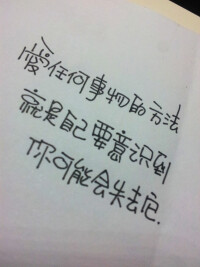 愛任何事物的方法
就是自己要意识到
你可能会失去它.